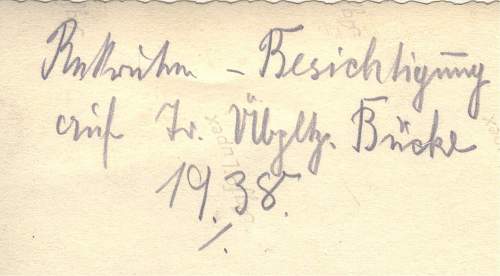 Rekruten - Besichtigung
auf Tr. Übgltz. Bücke
19.38.
Lupex